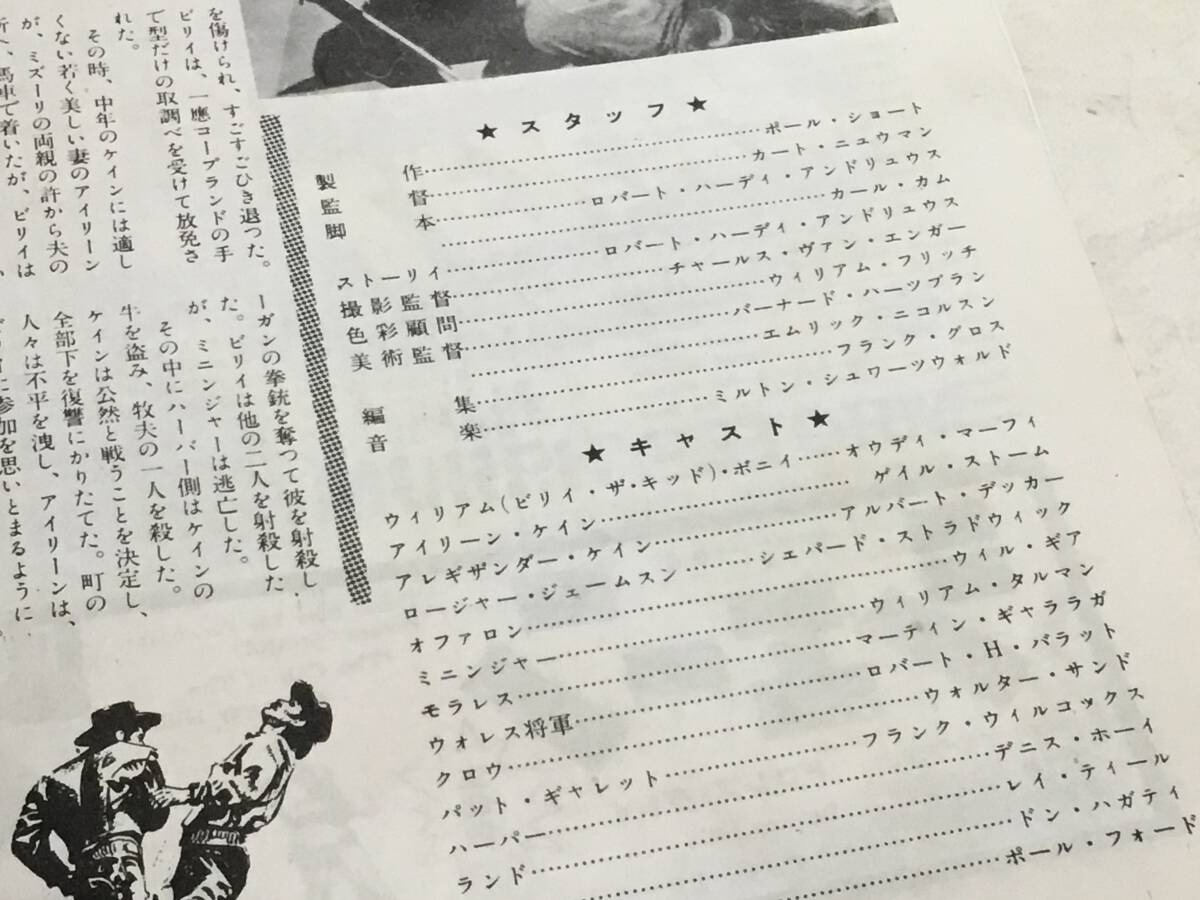 を傷けられ、すごすごひき退った。
ビリイは、一應コープランドの手
で型だけの取調べを受けて放免さ
れた。
その時、中年のケインには適し
くない若く美しい妻のアイリーン
が、ミズーリの両親の許から夫の
馬車で着いたが、ビリイは
ーガンの拳銃を奪つて彼を射殺し、
た。ビリイは他の二人を射殺した
が、ミニンジャーは逃亡した。
その中にハーパー側はケインの
牛を盗み、牧夫の一人を殺した。
ケインは公然と戦うことを決定し、
全部下を復讐にかりたてた。町の
人々は不平を洩し、アイリーンは、
参加を思いとまるように
★スタッフ★
製作……ポール・ショート
監督……カート・ニュウマン
脚本……ロバート・ハーディ・アンドリュウス
……カール・カム
ストーリイ……ロバート・ハーディ・アンドリュウス
撮影監督……チャールス・ヴァン・エンガー
色彩顧問……ウィリアム・フリッチ
美術監督……バーナード・ハーツブラン
……エムリック・ニコルスン
編集……フランク・グロス
音楽……ミルトン・シュワーツウォルド
★キャスト★
ウィリアム(ビリイ・ザ・キッド)・ボニイ……オウディ・マーフィ
アイリーン・ケイン……ゲイル・ストーム
アレギザンダー・ケイン……アルバート・デッカー
ロージャー・ジェームスン……シェパード・ストラドウィック
オファロン……ウィル・ギア
ミニンジャー……ウィリアム・タルマン
モラレス……マーティン・ギャララガ
ウオレス将軍……ロバート・H・バラット
クロウ……ウォルター・サンド
パット・ギャレット……フランク・ウィルコックス
ハーパー……デニス・ホーイ
ランド……レイ・ティール
……ドン・ハガティ
……ポール・フォード